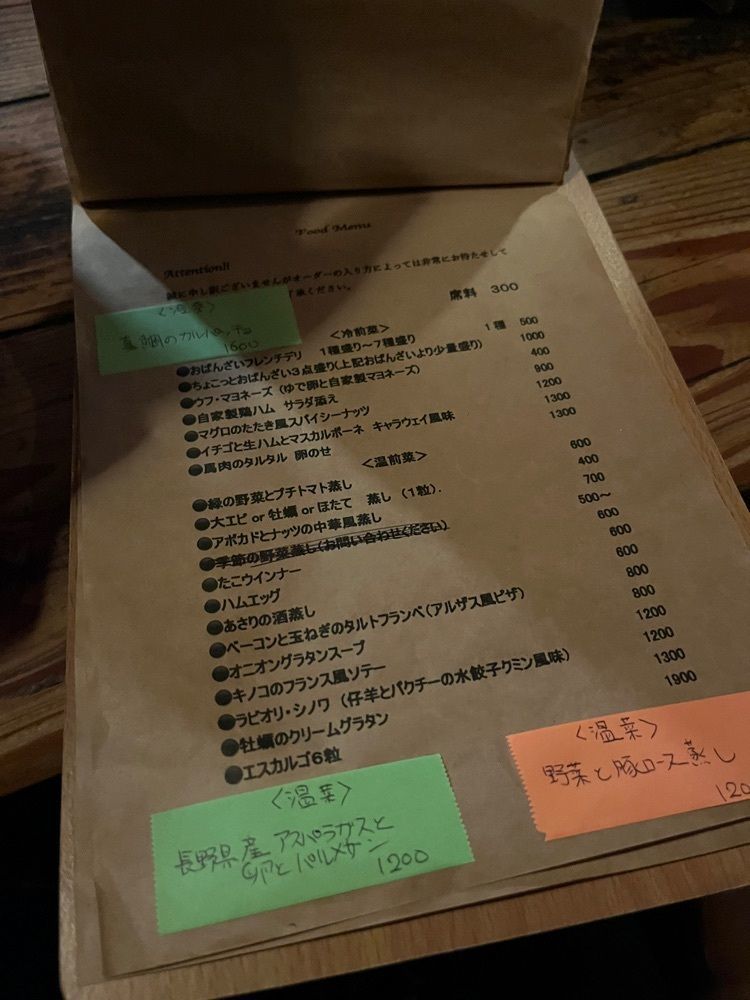 Food Menu
Attention!!
誠に申し訳ございませんがオーダーの入り方によっては非常にお待たせして
了承ください。
席料 300
〈温菜〉
真鯛のカルパッチョ
1600
<冷前菜>
●おばんざいフレンチデリ 1種盛り~7種盛り 1種 500
●ちょこっとおばんざい3点盛り(上記おばんざいより少量盛り) 1000
●ウフ・マヨネーズ (ゆで卵と自家製マヨネーズ) 400
●自家製鶏ハム サラダ添え 900
●マグロのたたき風スパイシーナッツ 1200
●イチゴと生ハムとマスカルポーネ キャラウェイ風味 1300
●馬肉のタルタル 卵のせ 1300
<温前菜>
●緑の野菜とプチトマト蒸し 600
●大エビ or 牡蠣 or ほたて 蒸し (1粒). 400
●アボカドとナッツの中華風蒸し 700
●季節の野菜蒸し(お問い合わせください) 500~
●たこウインナー 600
●ハムエッグ 600
●あさりの酒蒸し 600
●ベーコンと玉ねぎのタルトフランベ(アルザス風ピザ) 800
●オニオングラタンスープ 800
●キノコのフランス風ソテー 1200
●ラビオリ・シノワ (仔羊とパクチーの水餃子クミン風味) 1200
●牡蠣のクリームグラタン 1300
●エスカルゴ6粒 1900
〈温菜〉
野菜と豚ロース蒸し
120
〈温菜〉
長野県産 アスパラガスと
卵とパルメザン
1200